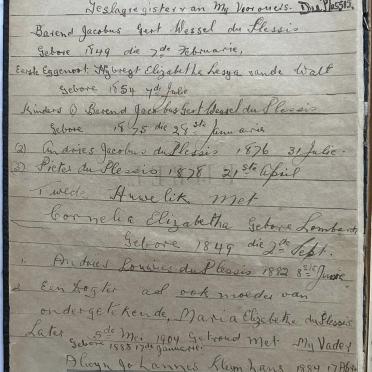 Geslagregister van My Voorouers. Du Plessis.
Barend Jacobus Gert Wessel du Plessis
Gebore 1849 die 7de Februarie.
Eerste Eggenoot Elizabetha van de Walt
Gebore 1854 7de Julie
Kinders (1) Barend Jacobus Gert Wessel du Plessis
Gebore 1875 die 29ste Januarie
(2) Andries Jacobus du Plessis 1876 31 Julie.
3) Pieter du Plessis 1878 21ste April
Huwelik Met
Cornelia Elizabetha Gebore Lombard
Gebore 1849 die 2de Sept.
1. Andries Lourens du Plessis 1882 8ste Junie
2 Een dogter ook moeder van
ondergetekende Maria Elizabetha du Plessis
Gebore 1885 17de Januarie
Later 5de Mei 1904 Getroud Met My Vader
Alwyn Johannes Kleynhans 1884